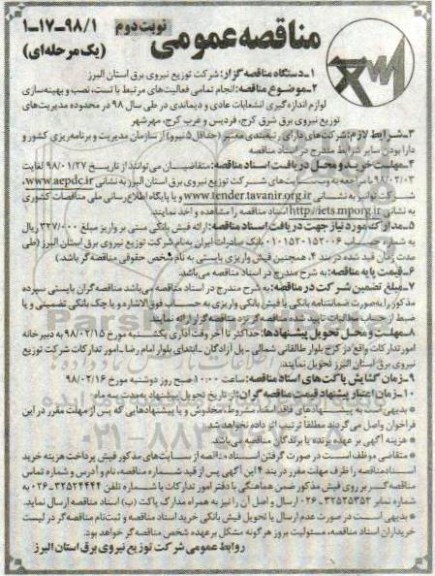 مناقصه عمومی نوبت دوم ۹۸/۱-۱۷-۱
(یک مرحله‌ای)
۱-دستگاه مناقصه گزار: شرکت توزیع نیروی برق استان البرز
۲-موضوع مناقصه: انجام تمامی فعالیت‌های مرتبط با تست، نصب و بهینه‌سازی
لوازم اندازه‌گیری انشعابات عادی و دیماندی در طی سال ۹۸ در محدوده مدیریت‌های
توزیع نیروی برق شرق کرج، فردیس و غرب کرج، مهرشهر
۳-شرایط لازم: شرکت‌های دارای رتبه‌بندی معتبر (حداقل ۵ نیرو) از سازمان مدیریت و برنامه‌ریزی کشور و
دارا بودن سایر شرایط مندرج در اسناد مناقصه
۴-مهلت خرید و محل دریافت اسناد مناقصه: متقاضیان می‌توانند از تاریخ ۹۸/۰۱/۲۷ لغایت
۹۸/۰۲/۰۳ با مراجعه به وبسایت‌های شرکت توزیع نیروی برق استان البرز به نشانی www.aepdc.ir،
شرکت توانیر به نشانی www.tender.tavanir.org.ir و یا پایگاه اطلاع رسانی ملی مناقصات کشوری
به نشانی http://iets.mporg.ir اسناد مناقصه را مشاهده و اخذ نمایند.
۵-مدارک مورد نیاز جهت دریافت اسناد مناقصه: ارائه فیش بانکی مبنی بر واریز مبلغ ۳۲۷/۰۰۰ ریال
به شماره حساب ۰۱۰۱۵۲۰۱۵۲۰۰۶ بانک صادرات ایران به‌نام شرکت توزیع نیروی برق استان البرز (طی
مدت زمان قید شده در بند ۴، همچنین فیش واریزی بایستی به نام شخص حقوقی مناقصه‌گر باشد.)
۶-قیمت پایه مناقصه: به شرح مندرج در اسناد مناقصه می‌باشد.
۷-مبلغ تضمین شرکت در مناقصه: به شرح مندرج در اسناد مناقصه می‌باشد مناقصه گران بایستی سپرده
مذکور را به‌صورت ضمانتنامه بانکی یا فیش بانکی واریزی به حساب فوق‌الاشاره و یا چک بانکی تضمینی و یا
ضبط از حساب مطالبات تایید شده مناقصه گر نزد مناقصه‌گزار ارائه نمایند.
۸-مهلت و محل تحویل پیشنهادها: حداکثر تا آخر وقت اداری یکشنبه مورخ ۹۸/۰۲/۱۵ به دبیرخانه
امور تدارکات واقع در کرج بلوار طالقانی شمالی-پل آزادگان-ابتدای بلوار امام رضا-امور تدارکات شرکت توزیع
نیروی برق استان البرز تحویل نمایند.
۹-زمان گشایش پاکت‌های اسناد مناقصه: ساعت ۱۰:۰۰ صبح روز دوشنبه مورخ ۹۸/۰۲/۱۶
۱۰-زمان اعتبار پیشنهاد قیمت مناقصه گران: از تاریخ تحویل پیشنهاد به‌مدت سه ماه
* بدیهی است به پیشنهادهای فاقد امضا، مشروط، مخدوش و یا پیشنهادهایی که پس از مهلت مقرر در این
فراخوان واصل می‌گردد مطلقا ترتیب اثر داده نخواهد شد.
* هزینه آگهی بر عهده برنده یا برندگان مناقصه می‌باشد.
* متقاضی موظف است در صورت گرفتن اسناد مناقصه از سایت‌های مذکور فیش پرداخت هزینه خرید
اسناد مناقصه را ظرف مهلت مقرر در بند ۴ این آگهی پس از قید شماره مناقصه، نام و آدرس و شماره تماس
مناقصه گر بر روی فیش مذکور ضمن هماهنگی با دفتر امور تدارکات با شماره تلفن ۳۲۵۲۴۴۴۴-۰۲۶ به
شماره نمابر ۳۲۵۲۵۳۵۲-۰۲۶ ارسال و اصل آن را نیز به همراه مدارک پاکت (ب) اسناد مناقصه ارسال نماید.
* بدیهی است در صورت عدم ارسال یا تحویل فیش بانکی خرید اسناد مناقصه و ثبت‌نام مناقصه‌گر در لیست
خریداران اسناد مناقصه، مسئولیت بروز هرگونه مشکل بر عهده شخص مناقصه‌گر خواهد بود.
روابط عمومی شرکت توزیع نیروی برق استان البرز